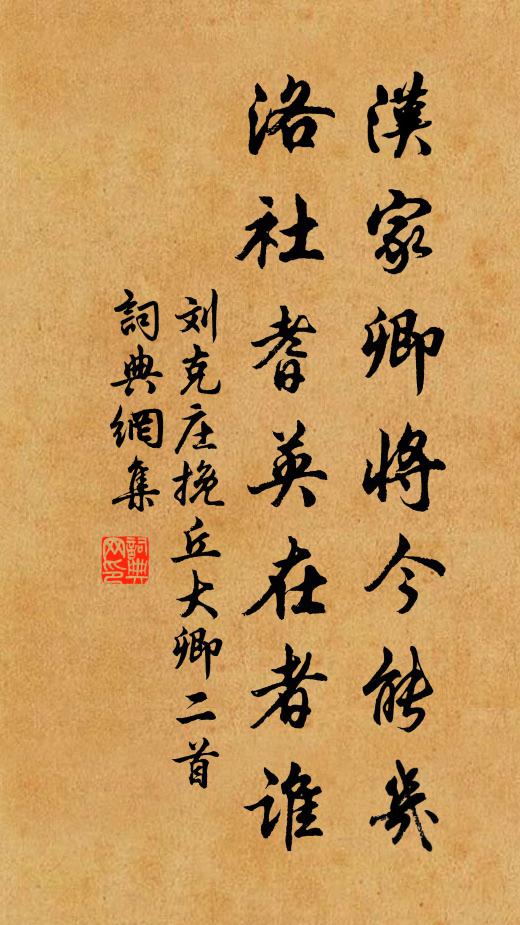 漢家卿將今能幾
洛社耆英在者誰
刘克庄挽丘大卿二首
詞典網集
詞典網印